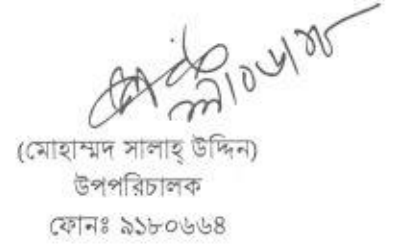 (মোহাম্মদ সালাহ্ উদ্দিন)
উপপরিচালক
ফোনঃ ৯১৮০৬৬৪